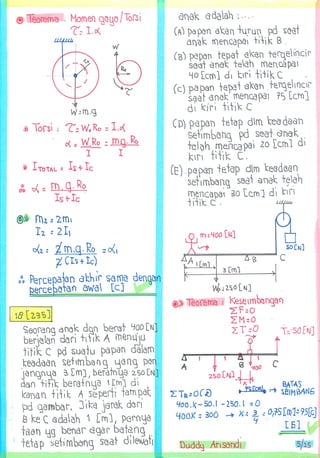 Teorema: Momen gaya/Torsi
τ = I.α
W
Ro
τ
W = m.g
Torsi : τ = W.Ro = I.α
α = W.Ro = m.g.Ro
I I
I TOTAL = Is + Ic
α₁ = m.g.Ro
Is + Ic
m₂ = 2m₁
I₂ = 2I₁
α₂ = 2m.g.Ro = α₁
2(Is + Ic)
∴ Percepatan akhir sama dengan
percepatan awal [C]
18 [235]
Seorang anak dgn berat 400 [N]
berjalan dari titik A menuju
titik C pd suatu papan dalam
keadaan setimbang yang pan
jangnya 3 [m], beratnya 250 [N]
dan titik beratnya 1 [m] di
kanan titik A seperti tampak
pd gambar. Jika jarak dari
B ke C adalah 1 [m], pernya
taan yg benar agar batang
tetap setimbang saat dilewati
anak adalah : ....
(A) papan akan turun pd saat
anak mencapai titik B.
(B) papan tepat akan tergelincir
saat anak telah mencapai
40 [cm] di kiri titik C
(C) papan tepat akan tergelincir
saat anak mencapai 75 [cm]
di kiri titik C
(D) papan tetap dlm keadaan
setimbang pd saat anak
telah mencapai 20 [cm] di
kiri titik C.
(E) papan tetap dlm keadaan
setimbang saat anak telah
mencapai 30 [cm] di kiri
titik C.
m = 400 [N]
50 [N]
A B C
1 [m]
3 [m]
W = 250 [N]
Teorema : Keseimbangan
ΣF = 0
ΣM = 0
Στ = 0
T = 50 [N]
A 1 1 B 1 C
250 [N] 400
BATAS
SEIMBANG
Στ B = 0
400.X - 50.1 - 250.1 = 0
400X = 300 → X = 3/4 = 0,75 [m] = 75 [cm]
[B]
Duddy Arisandi
5/15